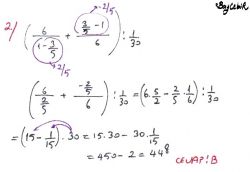 BayCebir
2/ ( 6/(1 - 3/5) + (3/5 - 1)/6 ) : 1/30
-2/5
2/5
( 6/(2/5) + (-2/5)/6 ) : 1/30 = (6.5/2 - 2/5.1/6) : 1/30
= (15 - 1/15).30 = 15.30 - 30.1/15
= 450 - 2 = 448
CEVAP: B